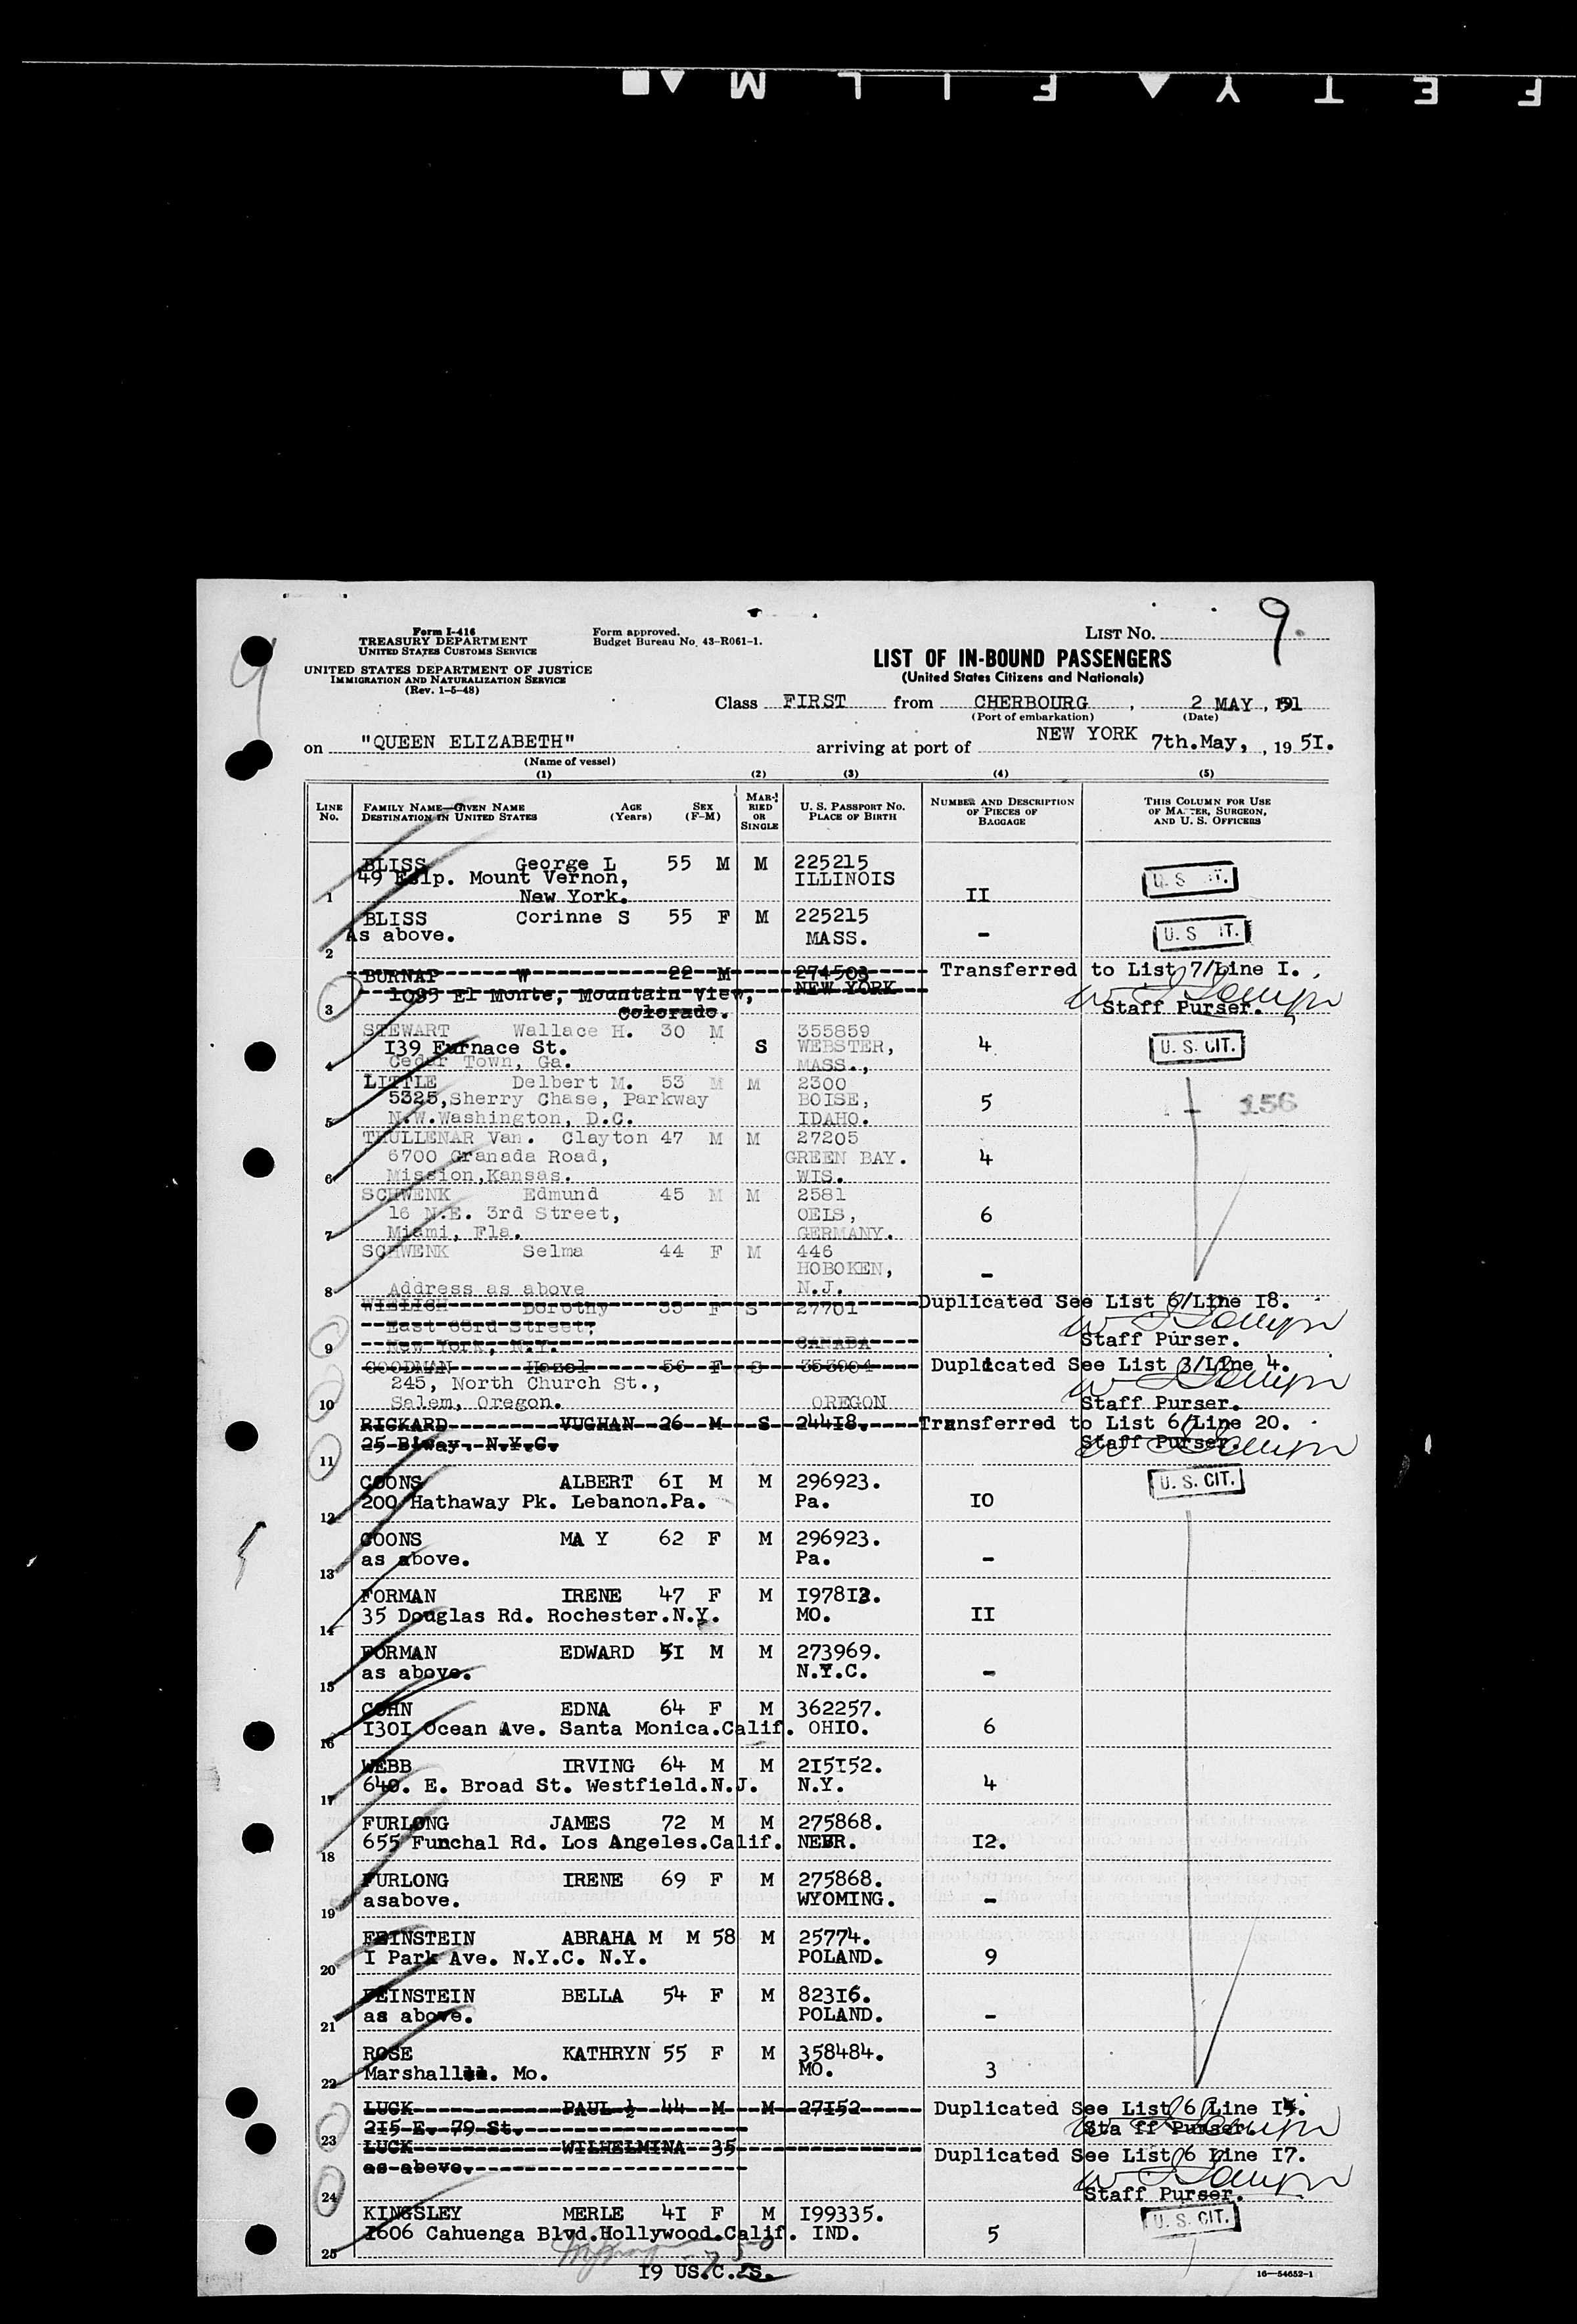 SAFETY FILM
9
Form I-416
TREASURY DEPARTMENT
UNITED STATES CUSTOMS SERVICE
UNITED STATES DEPARTMENT OF JUSTICE
IMMIGRATION AND NATURALIZATION SERVICE
(Rev. 1-5-48)
Form approved.
Budget Bureau No. 43-R061-1.
LIST NO. 9
LIST OF IN-BOUND PASSENGERS
(United States Citizens and Nationals)
Class FIRST from CHERBOURG, 2 MAY, 1951
(Port of embarkation) (Date)
on "QUEEN ELIZABETH" arriving at port of NEW YORK 7th.May, , 19 5I.
(Name of vessel)
(1) (2) (3) (4) (5)
LINE NO. FAMILY NAME—GIVEN NAME DESTINATION IN UNITED STATES AGE (Years) SEX (F-M) MARRIED OR SINGLE U. S. PASSPORT NO. PLACE OF BIRTH NUMBER AND DESCRIPTION OF PIECES OF BAGGAGE THIS COLUMN FOR USE OF MASTER, SURGEON, AND U. S. OFFICERS
BLISS George L 55 M M 225215
49 Eslp. Mount Vernon, ILLINOIS
1 New York. II U. S. CIT.
BLISS Corinne S 55 F M 225215
As above. MASS. - U. S. CIT.
2
BURNAP W 22 M 274503 Transferred to List 7/Line I.
1095 El Monte, Mountain View, NEW YORK
3 Colorado. Staff Purser.
STEWART Wallace H. 30 M 355859
I39 Furnace St. S WEBSTER, 4 U. S. CIT.
4 Cedar Town, Ga. MASS.,
LITTLE Delbert M. 53 M M 2300
5325,Sherry Chase, Parkway BOISE, 5 156
5 N.W.Washington, D.C. IDAHO.
THULLENAR Van. Clayton 47 M M 27205
6700 Granada Road, GREEN BAY. 4
6 Mission,Kansas. WIS.
SCHWENK Edmund 45 M M 2581
16 N.E. 3rd Street, OELS, 6
7 Miami, Fla. GERMANY.
SCHWENK Selma 44 F M 446
HOBOKEN, -
8 Address as above N.J.
Dorothy 35 F S 27701 Duplicated See List 6/Line I8.
East 63rd Street,
9 New York, N.Y. CANADA Staff Purser.
GOODMAN Hazel 56 F S 353904 Duplicated See List 3/Line 4.
245, North Church St.,
10 Salem, Oregon. OREGON Staff Purser.
RICKARD VUGHAN 26 M S 244I8. Transferred to List 6/Line 20.
25 B1way. N.Y.C. Staff Purser.
11
COONS ALBERT 6I M M 296923. U. S. CIT.
200 Hathaway Pk. Lebanon.Pa. Pa. IO
12
COONS MA Y 62 F M 296923.
as above. Pa. -
13
FORMAN IRENE 47 F M I97813.
35 Douglas Rd. Rochester.N.Y. MO. II
14
FORMAN EDWARD 5I M M 273969.
as above. N.Y.C. -
15
COHN EDNA 64 F M 362257.
I30I Ocean Ave. Santa Monica.Calif. OHIO. 6
16
WEBB IRVING 64 M M 2I5I52.
640. E. Broad St. Westfield.N.J. N.Y. 4
17
FURLONG JAMES 72 M M 275868.
655 Funchal Rd. Los Angeles.Calif. NEBR. I2.
18
FURLONG IRENE 69 F M 275868.
asabove. WYOMING. -
19
FEINSTEIN ABRAHA M M 58 M 25774.
I Park Ave. N.Y.C. N.Y. POLAND. 9
20
FEINSTEIN BELLA 54 F M 823I6.
as above. POLAND. -
21
ROSE KATHRYN 55 F M 358484.
Marshall. Mo. MO. 3
22
LUCK PAUL 44 M M 27I52 Duplicated See List 6 Line I5.
2I5 E. 79 St. Sta ff Purser.
23
LUCK WILHELMINA 35 Duplicated See List 6 Line I7.
as above.
24 Staff Purser.
KINGSLEY MERLE 4I F M I99335. U. S. CIT.
I606 Cahuenga Blvd.Hollywood.Calif. IND. 5
25
I9 US.C.S. 16—54652-1